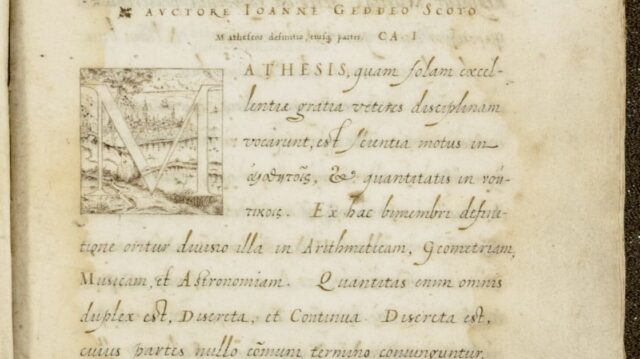 AVCTORE IOANNE GEDDEO SCOTO
Matheseos definitio, eiusq. partes. CA I
MATHESIS, quam solam excel-
lentiæ gratia veteres disciplinam
vocarunt, est scientia motus in
, & quantitatis in νου-
τικοις. Ex hac bimembri defini-
tione oritur diuisio illa in Arithmeticam, Geometriam,
Musicam, et Astronomiam. Quantitas enim omnis
duplex est, Discreta, et Continua. Discreta est,
cuius partes nullo cōmuni termino coniunguntur,